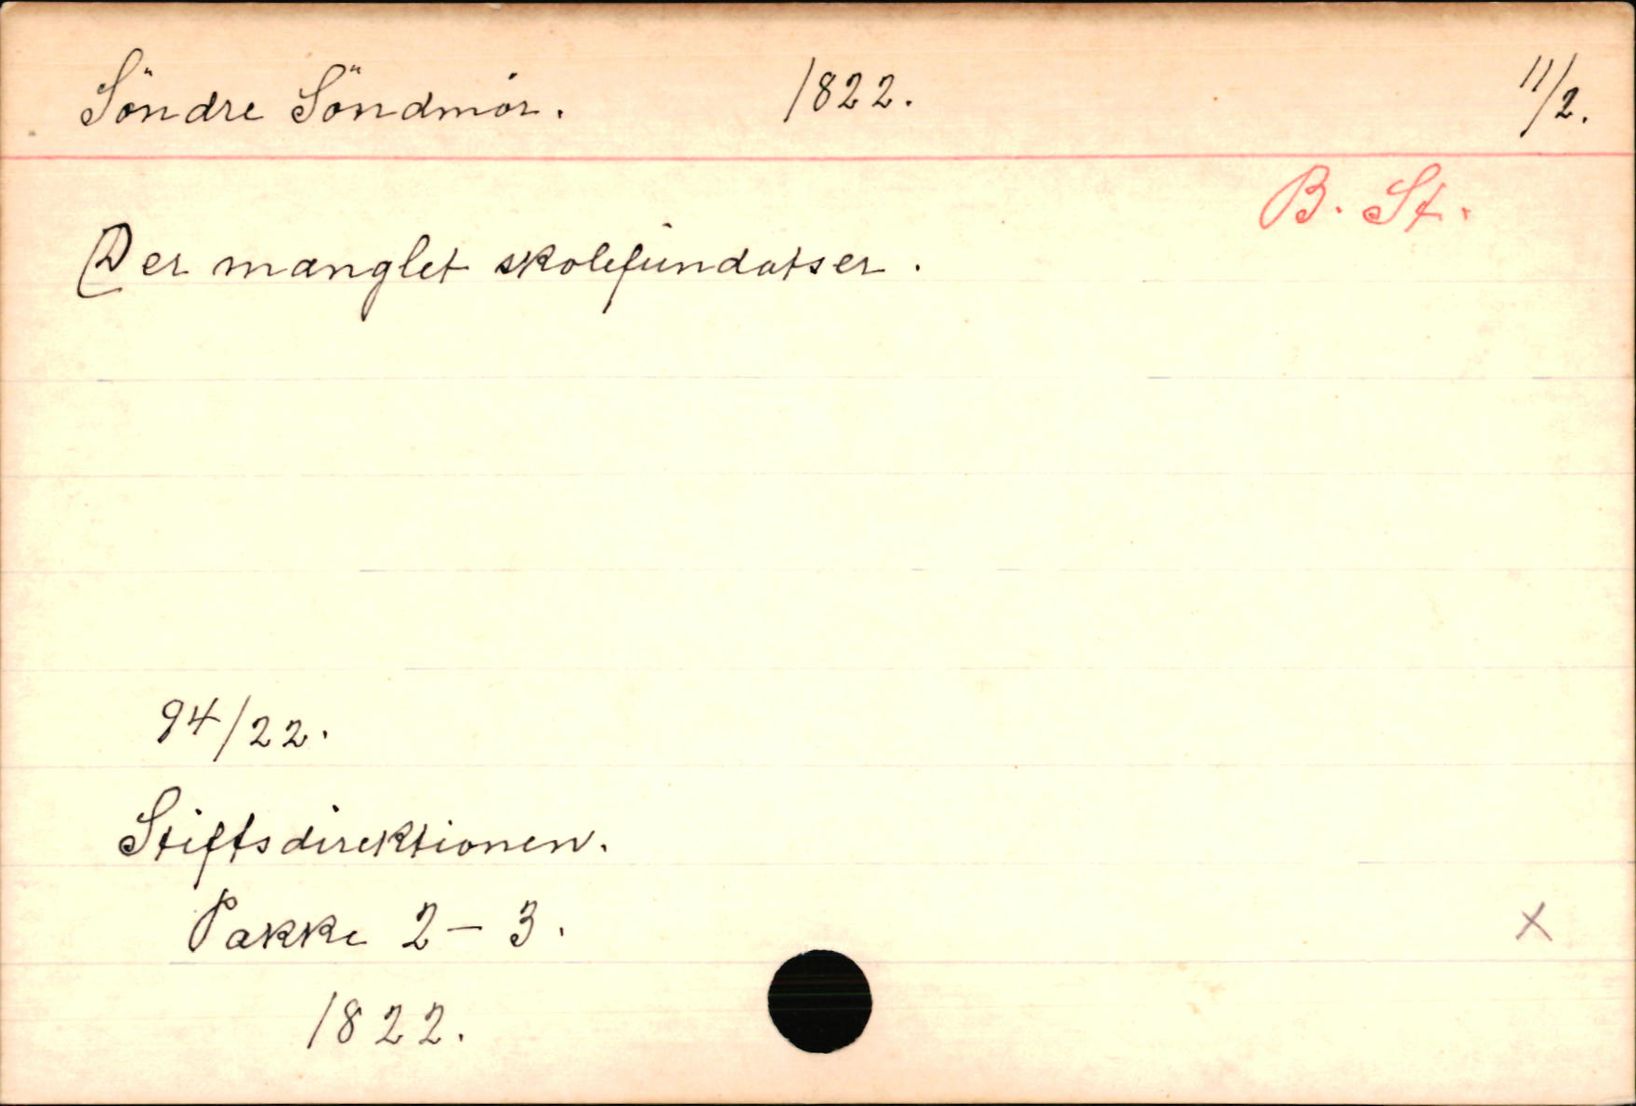 Söndre Söndmör. 1822. 11/2.
B. St.
Der manglet skolefundatser.
94/22.
Stiftsdirektionen.
Pakke 2-3.
1822.
X